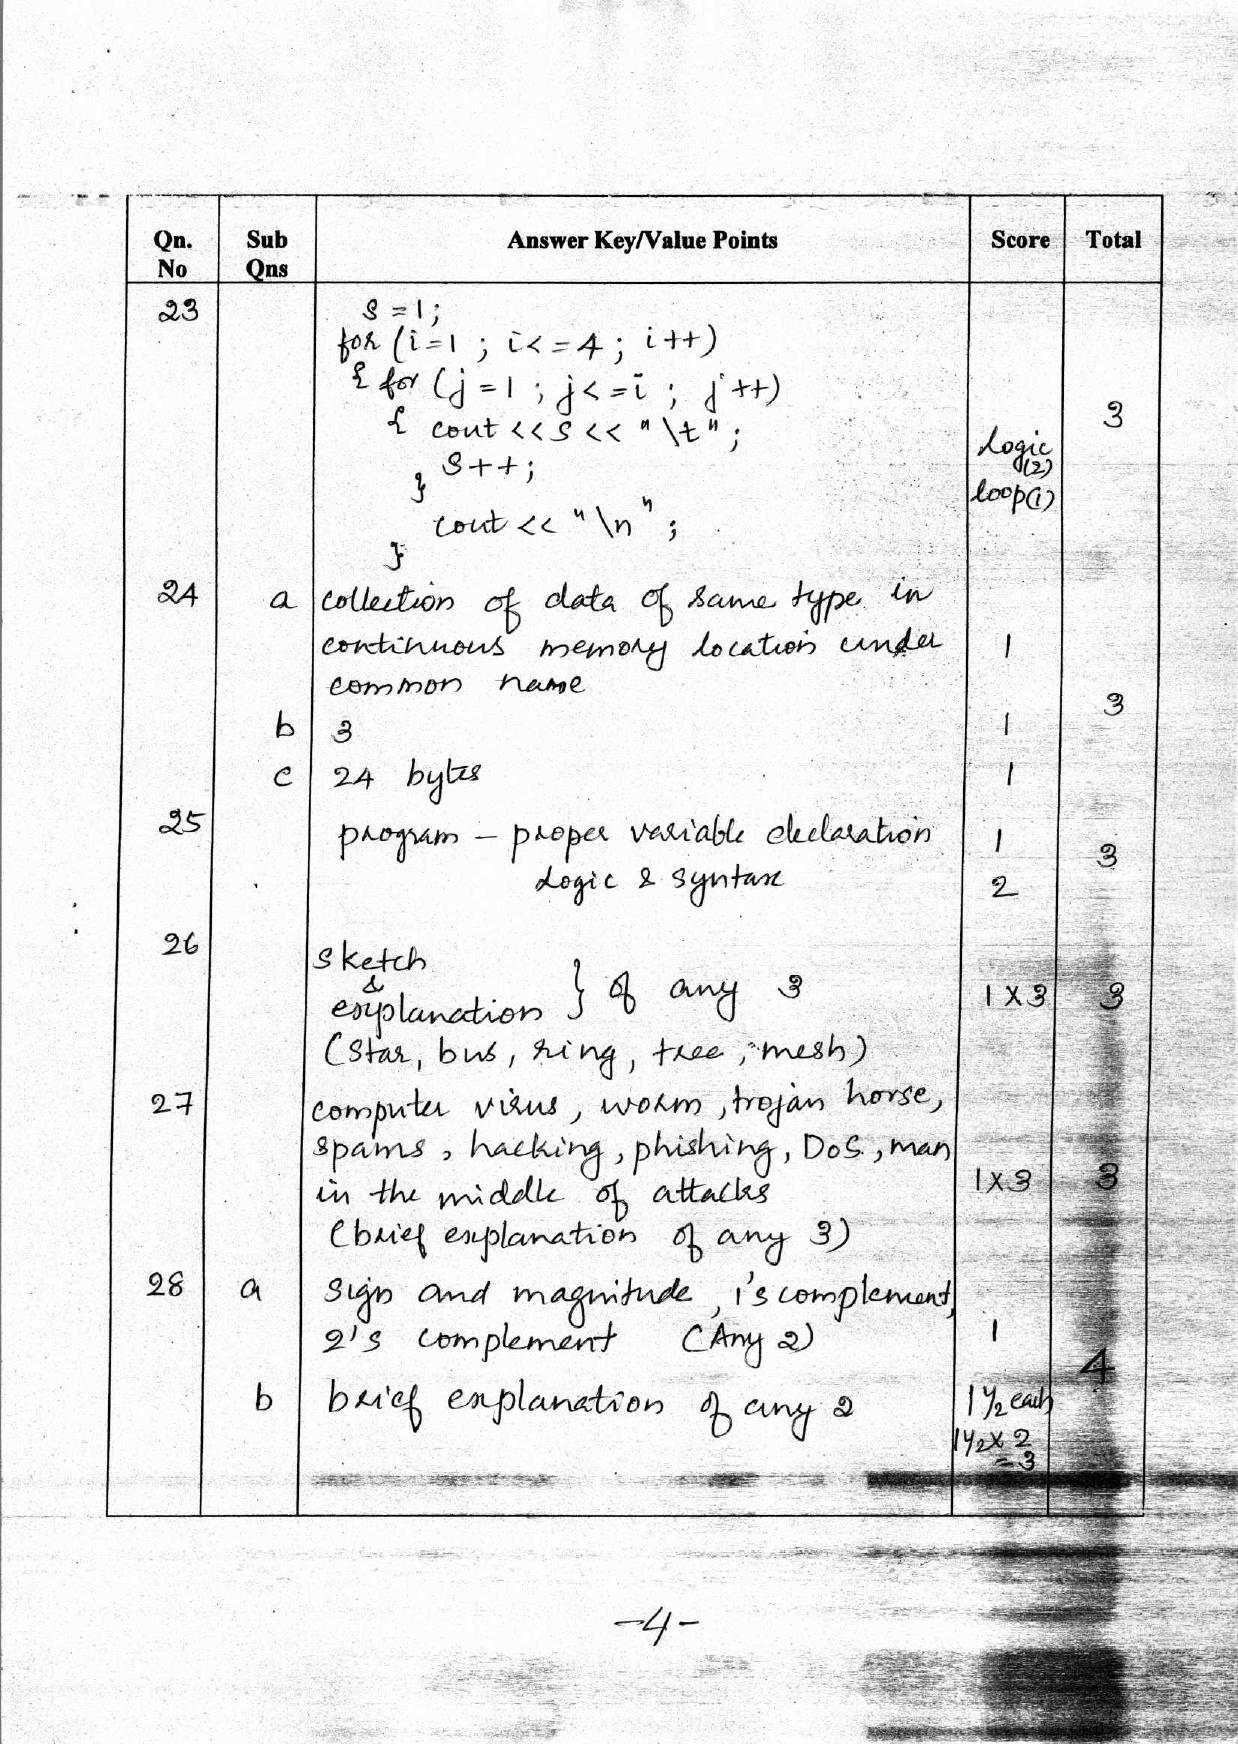 Qn. No Sub Qns Answer Key/Value Points Score Total
23 S=1;
for (i=1 ; i<=4 ; i++)
{ for (j=1 ; j<=i ; j++)
{ cout <<S<< "\t"; 3
S++; Logic (2)
} loop(1)
cout << "\n" ;
}
24 a collection of data of same type in
continuous memory location under 1
common name
3
b 3 1
c 24 bytes 1
25 program – proper variable declaration 1
3
Logic & syntax 2
26 sketch
&
explanation } of any 3 1 X 3 3
(star, bus, ring, tree, mesh)
27 computer virus, worm, trojan horse,
spams, hacking, phishing, DoS, man
in the middle of attacks 1X3 3
(brief explanation of any 3)
28 a sign and magnitude, 1's complement,
2's complement (Any 2) 1
4
b brief explanation of any 2 1½ each
1½ X 2
= 3
-4-